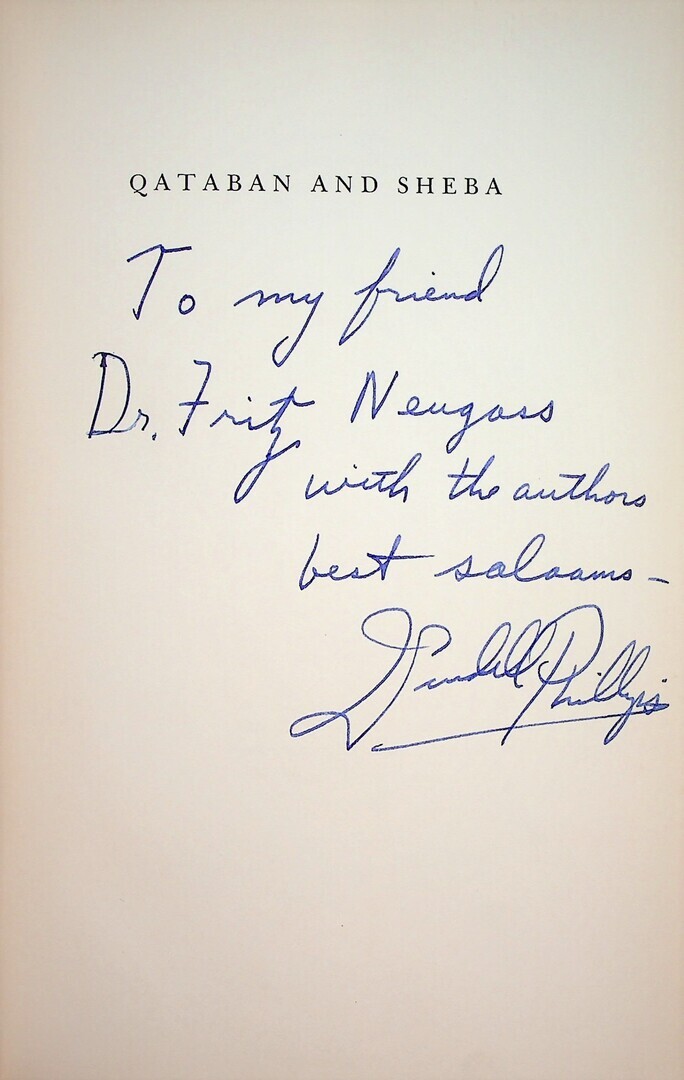 QATABAN AND SHEBA
To my friend
Dr. Fritz Neugass
with the authors
best salaams -
Wendell Phillips